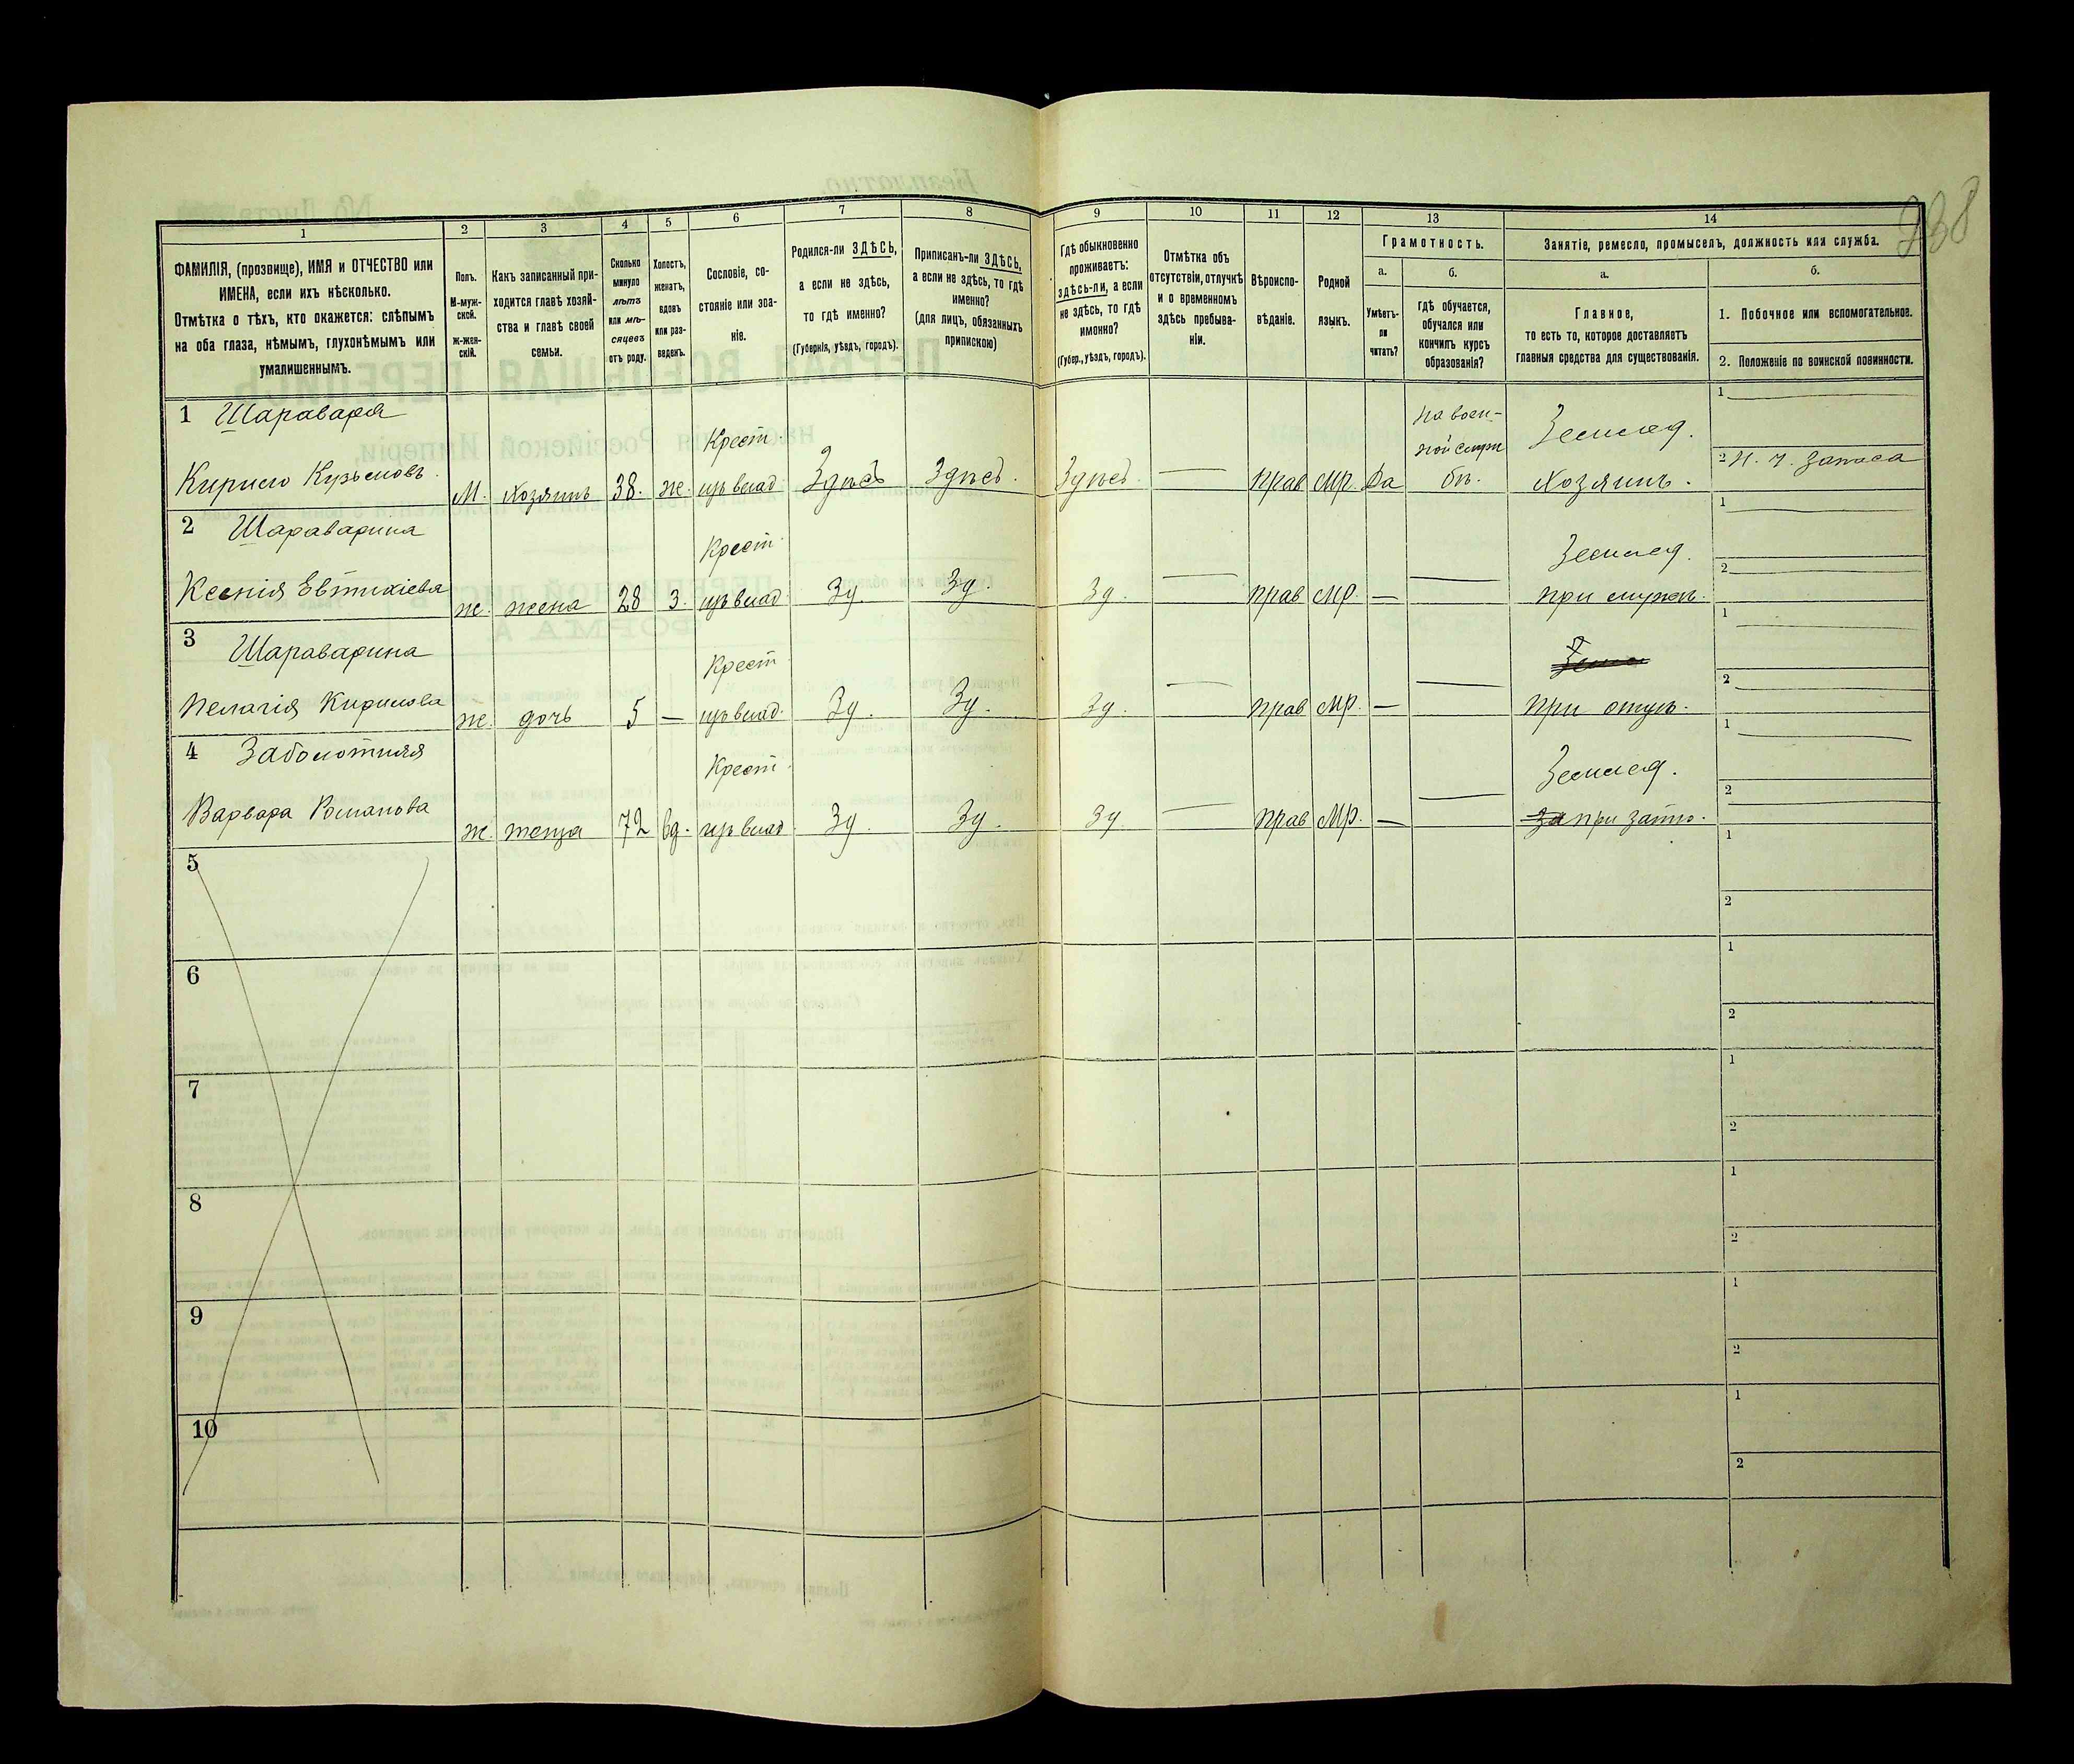 238
1 2 3 4 5 6 7 8 9 10 11 12 13 14
ФАМИЛІЯ, (прозвище), ИМЯ и ОТЧЕСТВО или
ИМЕНА, если ихъ нѣсколько.
Отмѣтка о тѣхъ, кто окажется: слѣпымъ
на оба глаза, нѣмымъ, глухонѣмымъ или
умалишеннымъ.
Полъ.
М-муж-
ской.
Ж-жен-
скій.
Какъ записанный при-
ходится главѣ хозяй-
ства и главѣ своей
семьи.
Сколько
минуло
лѣтъ
или мѣ-
сяцевъ
отъ роду.
Холостъ,
женатъ,
вдовъ
или раз-
веденъ.
Сословіе, со-
стояніе или зва-
ніе.
Родился-ли ЗДѢСЬ,
а если не здѣсь,
то гдѣ именно?
(Губернія, уѣздъ, городъ).
Приписанъ-ли ЗДѢСЬ,
а если не здѣсь, то гдѣ
именно?
(для лицъ, обязанныхъ
припискою)
Гдѣ обыкновенно
проживаетъ:
здѣсь-ли, а если
не здѣсь, то гдѣ
именно?
(Губер., уѣздъ, городъ).
Отмѣтка объ
отсутствіи, отлучкѣ
и о временномъ
здѣсь пребыва-
ніи.
Вѣроиспо-
вѣданіе.
Родной
языкъ.
Грамотность.
а.
Умѣетъ-
ли
читать?
б.
Гдѣ обучается,
обучался или
кончилъ курсъ
образованія?
Занятіе, ремесло, промыселъ, должность или служба.
а.
Главное,
то есть то, которое доставляетъ
главныя средства для существованія.
б.
1. Побочное или вспомогательное.
2. Положеніе по воинской повинности.
1 Шаравара Крест. На воен- Земмед. 1
ной служ 2 Н. Ч. Запаса
Кирило Кузьмовъ. М. хозяинъ 38. же. изъ влад. Здѣсь Здѣсь. Здѣсь. — Прав Мр. Да бѣ. Хозяинъ.
2 Шараварина Крест. Землед. 1
2
Ксенія Евтихіева ж. жена 28 З. изъ влад. Зд. Зд. Зд. — Прав Мр. — — при мужѣ.
3 Шараварина Крест 1
2
Пелагія Кирилова ж. дочь 5 — изъ влад. Зд. Зд. Зд. — Прав Мр. — — При отцѣ.
4 Заболотняя Крест. Землед. 1
2
Варвара Романова ж. теща 72 вд. изъ влад. Зд. Зд. Зд. — Прав Мр. — — при зятю.
5 1
2
6 1
2
7 1
2
8 1
2
9 1
2
10 1
2